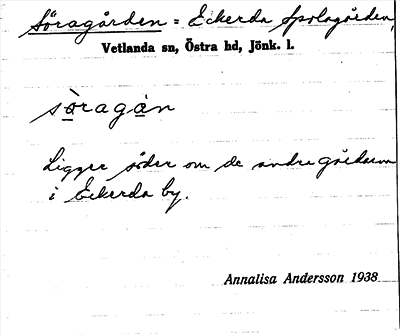 Söragården = Eckerda Spolagården,
Vetlanda sn, Östra hd, Jönk. l.
söragàn
Ligger söder om de andra gårdarna
i Eckerda by.
Annalisa Andersson 1938